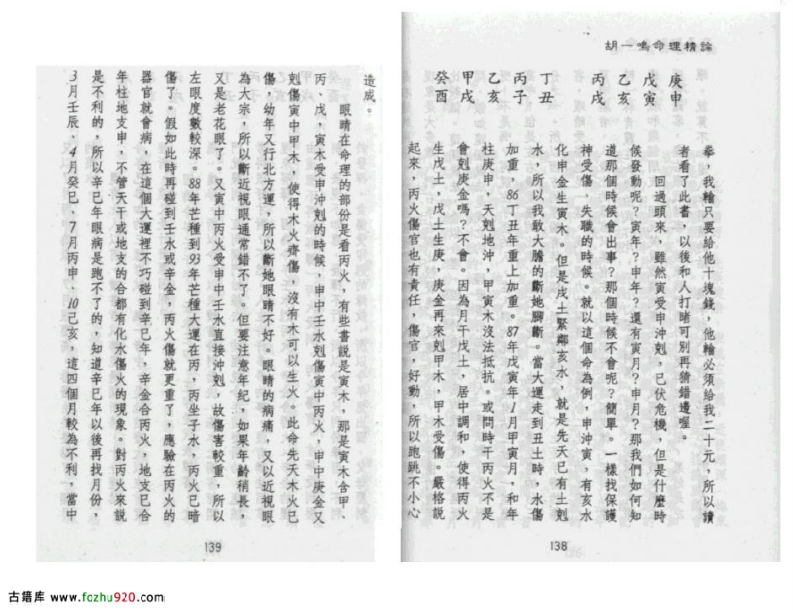 胡一鳴命理精論
拳，我輸只要給他十塊錢，他輸必須給我二十元，所以讀
者看了此書，以後和人打賭可別再猜錯邊喔。
庚申
戊寅
乙亥
丙戌
丁丑
丙子
乙亥
甲戌
癸酉
回過頭來，雖然寅受申沖剋，已伏危機，但是什麼時
候發動呢？寅年？申年？還有寅月？申月？那我們如何知
道那個時候會出事？那個時候不會呢？簡單。一樣找保護
神受傷、失職的時候。就以這個命為例，申沖寅，有亥水
化申金生寅木。但是戊土緊鄰亥水，就是先天已有土剋
水，所以我敢大膽的斷她腳斷。當大運走到丑土時，水傷
加重，86丁丑年重上加重。87年戊寅年1月甲寅月，和年
柱庚申，天剋地沖，甲寅木沒法抵抗。或問時干丙火不是
會剋庚金嗎？不會。因為月干戊土，居中調和，使得丙火
生戊土，戊土生庚，庚金再來剋甲木，甲木受傷。嚴格說
起來，丙火傷官也有責任，傷官，好動，所以跑跳不小心
138
造成。
眼睛在命理的部份是看丙火，有些書說是寅木，那是寅木含甲、
丙、戊，寅木受申沖剋的時候，申中壬水剋傷寅中丙火，申中庚金又
剋傷寅中甲木，使得木火齊傷，沒有木可以生火。此命先天木火已
傷，幼年又行北方運，所以斷她眼睛不好。眼睛的病痛，又以近視眼
為大宗，所以斷近視眼通常錯不了。但要注意年紀，如果年齡稍長，
又是老花眼了。又寅中丙火受申中壬水直接沖剋，故傷害較重，所以
左眼度數較深。88年芒種到93年芒種大運在丙，丙坐子水，丙火已暗
傷了。假如此時再碰到壬水或辛金，丙火傷就更重了，應驗在丙火的
器官就會病，在這個大運裡不巧碰到辛巳年，辛金合丙火，地支巳合
年柱地支申，不管天干或地支的合都有化水傷火的現象。對丙火來說
是不利的，所以辛巳年眼病是跑不了的，知道辛巳年以後再找月份，
3月壬辰、4月癸巳、7月丙申、10己亥，這四個月較為不利，當中
139
古籍库 www.fozhu920.com